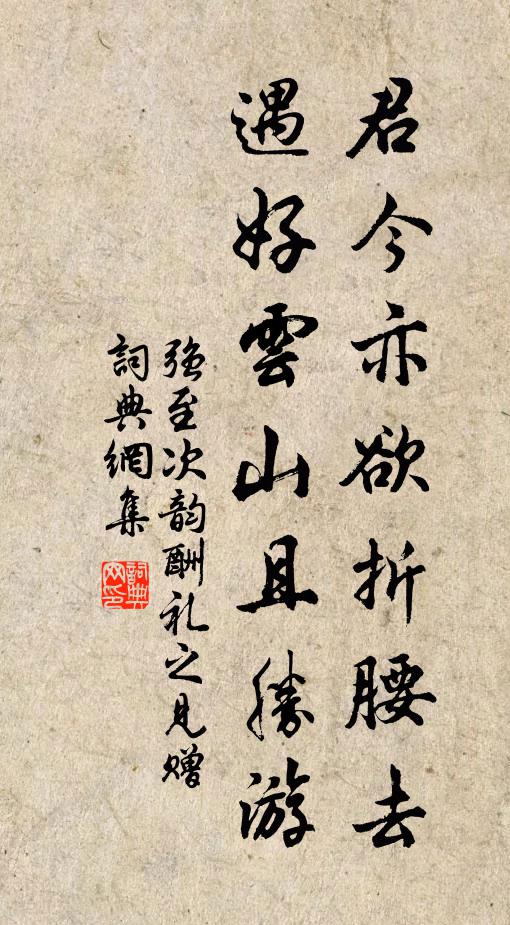 君今亦欲折腰去
遇好雲山且勝游
强至次韵酬礼之見赠
詞典網集
詞典网印